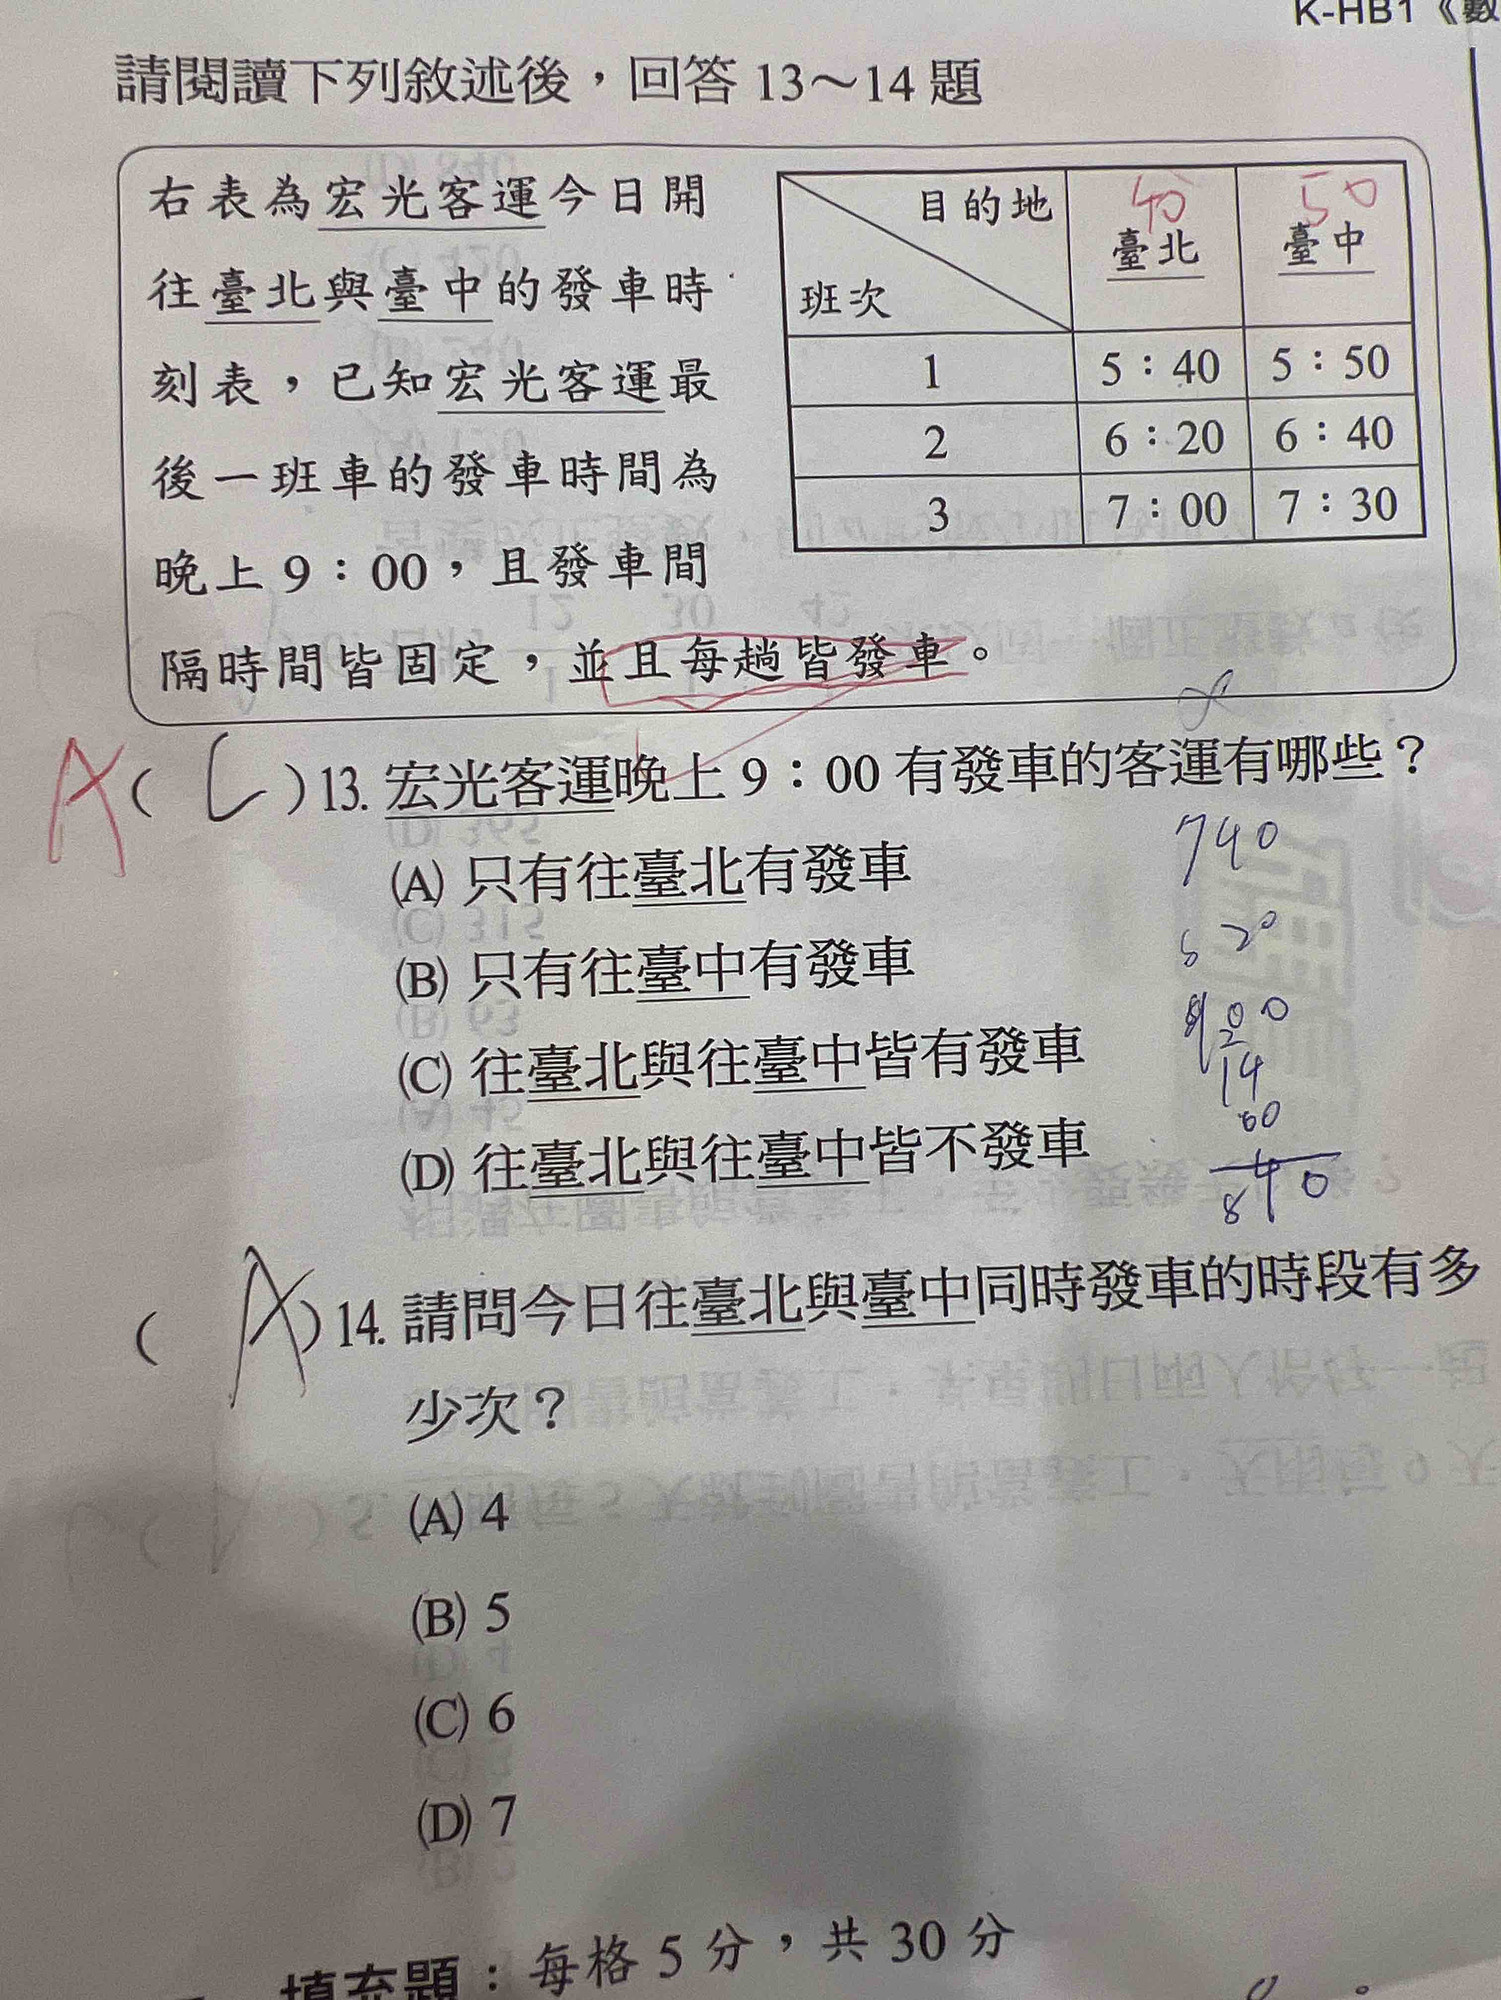 K-HB1《數
請閱讀下列敘述後，回答 13～14 題
右表為宏光客運今日開
往臺北與臺中的發車時
刻表，已知宏光客運最
後一班車的發車時間為
晚上 9：00，且發車間
隔時間皆固定，並且每趟皆發車。
目的地 班次 40 臺北 50 臺中
1 5：40 5：50
2 6：20 6：40
3 7：00 7：30
A ( C ) 13. 宏光客運晚上 9：00 有發車的客運有哪些？
(A) 只有往臺北有發車
740
(B) 只有往臺中有發車
(C) 往臺北與往臺中皆有發車
14
60
(D) 往臺北與往臺中皆不發車
840
( A ) 14. 請問今日往臺北與臺中同時發車的時段有多
少次？
(A) 4
(B) 5
(C) 6
(D) 7
填充題：每格 5 分，共 30 分